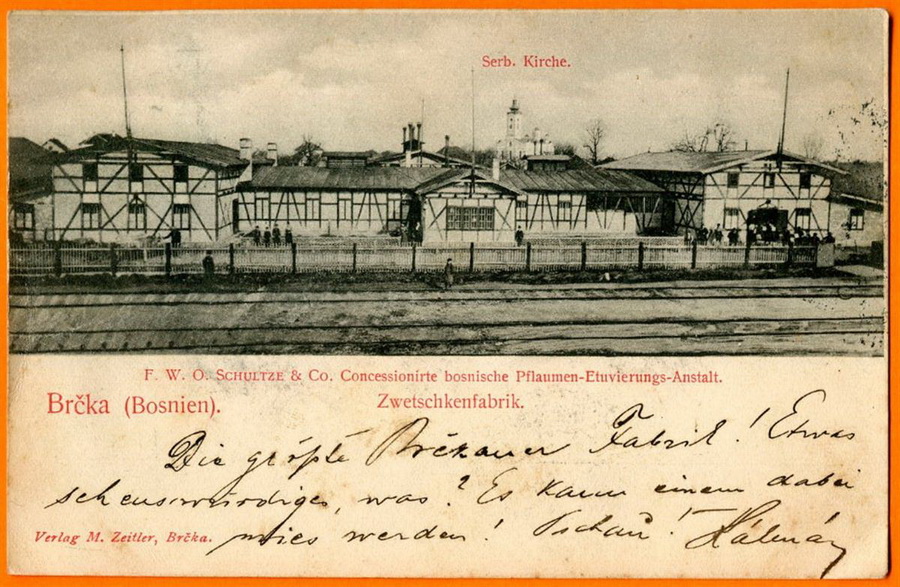 Serb. Kirche.
F. W. O. SCHULTZE & Co. Concessionirte bosnische Pflaumen-Etuvierungs-Anstalt.
Brčka (Bosnien).
Zwetschkenfabrik.
Die größte Brčkauer Fabrik! Etwas
sehenswürdiges, was? Es kann einem dabei
mies werden! Tschau! Kálmán
Verlag M. Zeitler, Brčka.